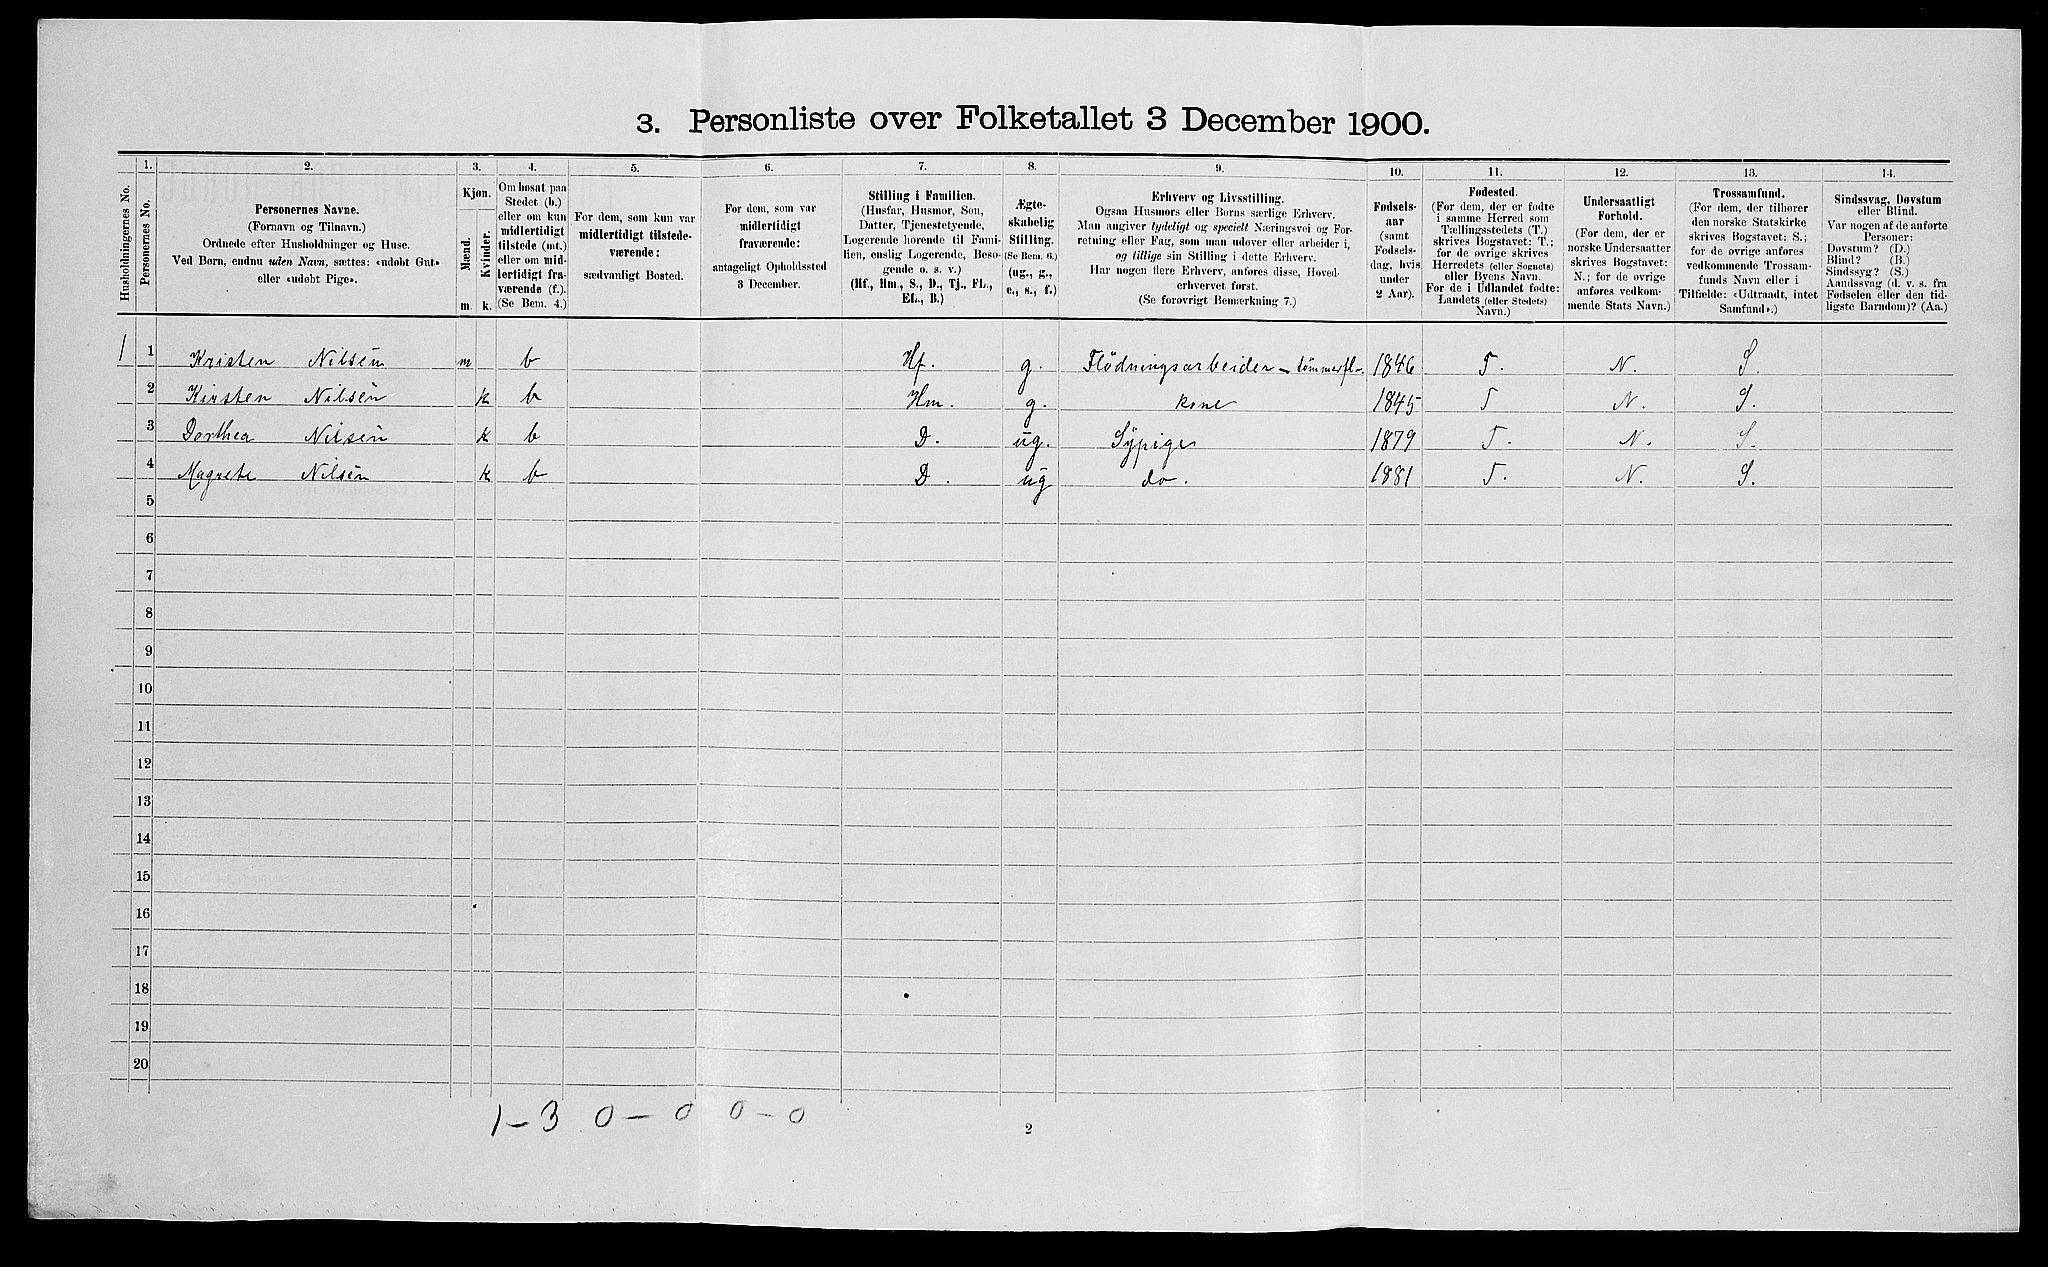 3. Personliste over Folketallet 3 December 1900.
Husholdningernes No.
1.
Personernes No.
2.
Personernes Navne.
(Fornavn og Tilnavn.)
Ordnede efter Husholdninger og Huse.
Ved Børn, endnu uden Navn, sættes: «udøbt Gut»
eller «udøbt Pige».
3.
Kjøn.
Mænd.
Kvinder.
m. k.
4.
Om bosat paa
Stedet (b.)
eller om kun
midlertidigt
tilstede (mt.)
eller om mid-
lertidigt fra-
værende (f.).
(Se Bem. 4.)
5.
For dem, som kun var
midlertidigt tilstede-
værende:
sædvanligt Bosted.
6.
For dem, som var
midlertidigt
fraværende:
antageligt Opholdssted
3 December.
7.
Stilling i Familien.
(Husfar, Husmor, Søn,
Datter, Tjenestetyende,
Logerende hørende til Fami-
lien, enslig Logerende, Besø-
gende o. s. v.)
(Hf., Hm., S., D., Tj., FL.,
EL., B.)
8.
Ægte-
skabelig
Stilling.
(Se Bem. 6.)
(ug., g.,
e., s., f.)
9.
Erhverv og Livsstilling.
Ogsaa Husmors eller Børns særlige Erhverv.
Man angiver tydeligt og specielt Næringsvei og For-
retning eller Fag, som man udøver eller arbeider i,
og tillige sin Stilling i dette Erhverv.
Har nogen flere Erhverv, anføres disse, Hoved-
erhvervet først.
(Se forøvrigt Bemærkning 7.)
10.
Fødsels-
aar
(samt
Fødsels-
dag, hvis
under
2 Aar).
11.
Fødested.
(For dem, der er fødte
i samme Herred som
Tællingsstedets (T.)
skrives Bogstavet: T.;
for de øvrige skrives
Herredets (eller Sognets)
eller Byens Navn.
For de i Udlandet fødte:
Landets (eller Stedets)
Navn.)
12.
Undersaatligt
Forhold.
(For dem, der er
norske Undersaatter
skrives Bogstavet:
N.; for de øvrige
anføres vedkom-
mende Stats Navn.)
13.
Trossamfund.
(For dem, der tilhører
den norske Statskirke
skrives Bogstavet: S.;
for de øvrige anføres
vedkommende Trossam-
funds Navn eller i
Tilfælde: «Udtraadt, intet
Samfund».)
14.
Sindssvag, Døvstum
eller Blind.
Var nogen af de anførte
Personer:
Døvstum? (D.)
Blind? (B.)
Sindssyg? (S.)
Aandssvag (d. v. s. fra
Fødselen eller den tid-
ligste Barndom)? (Aa.)
1 1 Kristen Nilsen m b Hf. g. Flødningsarbeider - tømmerfl- 1846 T. N. S.
2 Kirsten Nilsen k b Hm. g. kone 1845 T N. S.
3 Dorthea Nilsen k b D. ug. Sypige 1879 T. N. S.
4 Magrete Nilsen k b D. ug do. 1881 T. N. S.
5
6
7
8
9
10
11
12
13
14
15
16
17
18
19
20
1-3 0-0 0-0
2